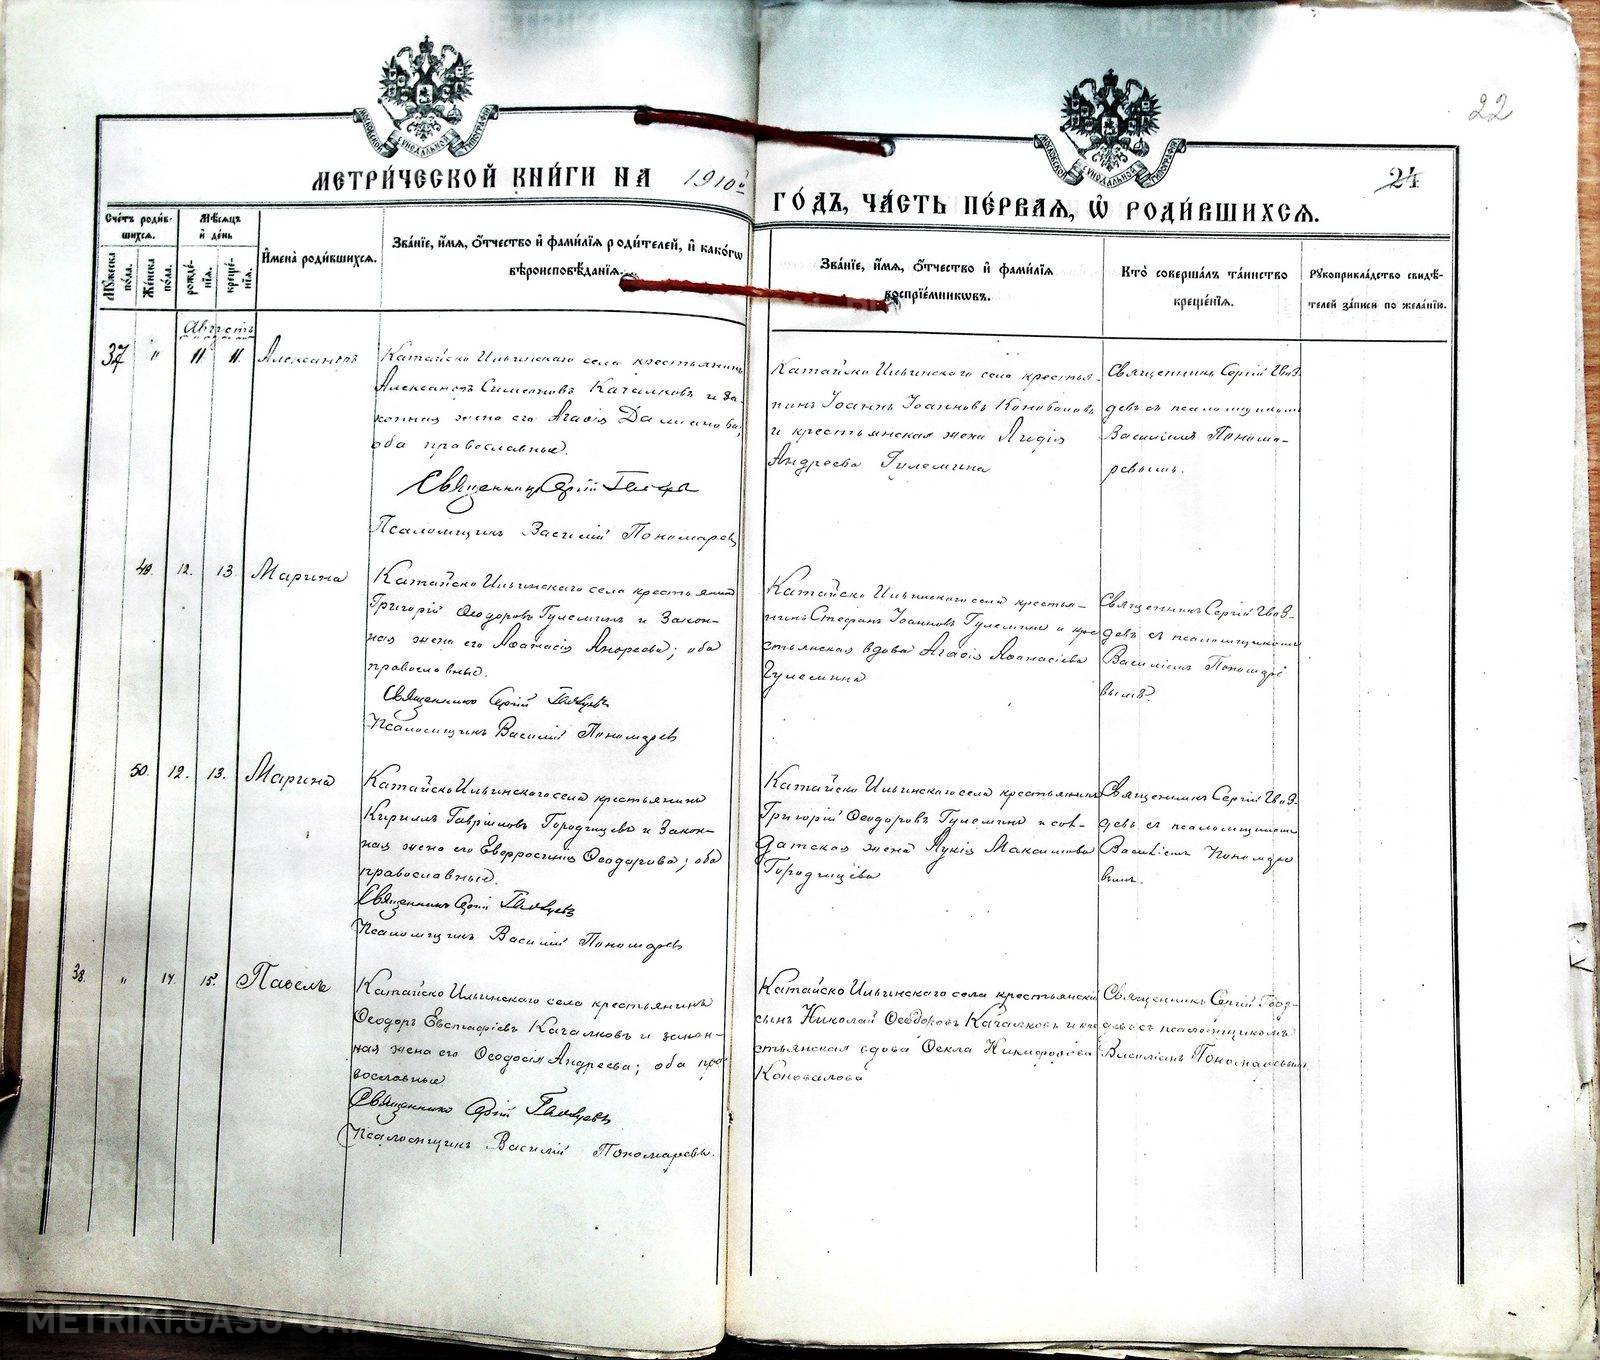 METRIKI.GASO-URAL.RU
METRIKI.GASO-URAL.RU
22
МОСКОВСКОЙ СѴНОДАЛЬНОЙ ТИПОГРАФІИ
МОСКОВСКОЙ СѴНОДАЛЬНОЙ ТИПОГРАФІИ
МЕТРИ́ЧЕСКОЙ КНИ́ГИ НА 1910й
ГО́ДЪ, ЧА́СТЬ ПЕ́РВАѦ, Ѡ҆ РОДИ́ВШИХСѦ.
24
Сче́тъ роди́в-
шихсѧ.
Мꙋ́жеска по́ла.
Же́нска по́ла.
Мѣ́сѧцъ
и҆ де́нь
рожде́-
нїѧ.
креще́-
нїѧ.
И҆мена̀ роди́вшихсѧ.
Зва́нїе, и҆́мѧ, ѻ҆́тчество и҆ фами́лїѧ роди́телей, и҆ како́гѡ
вѣроисповѣ́данїѧ.
Зва́нїе, и҆́мѧ, ѻ҆́тчество и҆ фами́лїѧ
воспрїе́мникѡвъ.
Кто̀ соверша́лъ та́инство
креще́нїѧ.
Рꙋкоприкла́дство свидѣ́-
телей за́писи по жела́нїю.
Августъ
37 " 11 11. Александръ
Катайско Ильинскаго села крестьянинъ
Александръ Симеоновъ Качалковъ и за-
конная жена его Агаѳія Даміанова,
оба православные.
Священникъ Сергій
Псаломщикъ Василій Пономарев
Катайско Ильинского села крестья-
нинъ Іоаннъ Іоанновъ Коновалов
и крестьянская жена Лидія
Андреева Гулемина
Священникъ Сергій Гвоз-
девъ съ псаломщикомъ
Василіемъ Понома-
ревымъ.
49. 12. 13. Марина
Катайско Ильинскаго села крестьянин
Григорій Ѳеодоровъ Гулеминъ и Закон-
ная жена его Аѳанасія Андреева; оба
православные.
Священникъ Сергій
Псаломщикъ Василій Пономарев
Катайско Ильинского села крестья-
нинъ Стефанъ Іоанновъ Гулеминъ и кре
стьянская вдова Агаѳія Аѳанасіева
Гулемина
Священникъ Сергій Гвоз-
девъ съ псаломщикомъ
Василіемъ Пономаре
вымъ.
50. 12. 13. Марина
Катайско Ильинского села крестьянинъ
Кириллъ Гавріиловъ Городищевъ и Закон-
ная жена его Евфросинія Ѳеодорова; оба
православные.
Священникъ Сергій
Псаломщикъ Василій Пономарев
Катайско Ильинского села крестьянинъ
Григорій Ѳеодоровъ Гулеминъ и сол-
датская жена Лукія Максимова
Городищева
Священникъ Сергій Гвоз-
девъ съ псаломщикомъ
Василіемъ Пономаре
вымъ.
38. " 14. 15. Павелъ
Катайско Ильинскаго села крестьянинъ
Ѳеодоръ Евстафіевъ Качалковъ и закон-
ная жена его Ѳеодосія Андреева; оба пра
вославные
Священникъ Сергій
Псаломщикъ Василій Пономаревъ.
Катайско Ильинскаго села крестьянскій
сынъ Николай Ѳеодоровъ Качалковъ и кре
стьянская вдова Ѳекла Никифорова
Коновалова
Священникъ Сергій Гвоз-
девъ съ псаломщикомъ
Василіемъ Пономаревымъ
METRIKI.GASO-URAL.RU